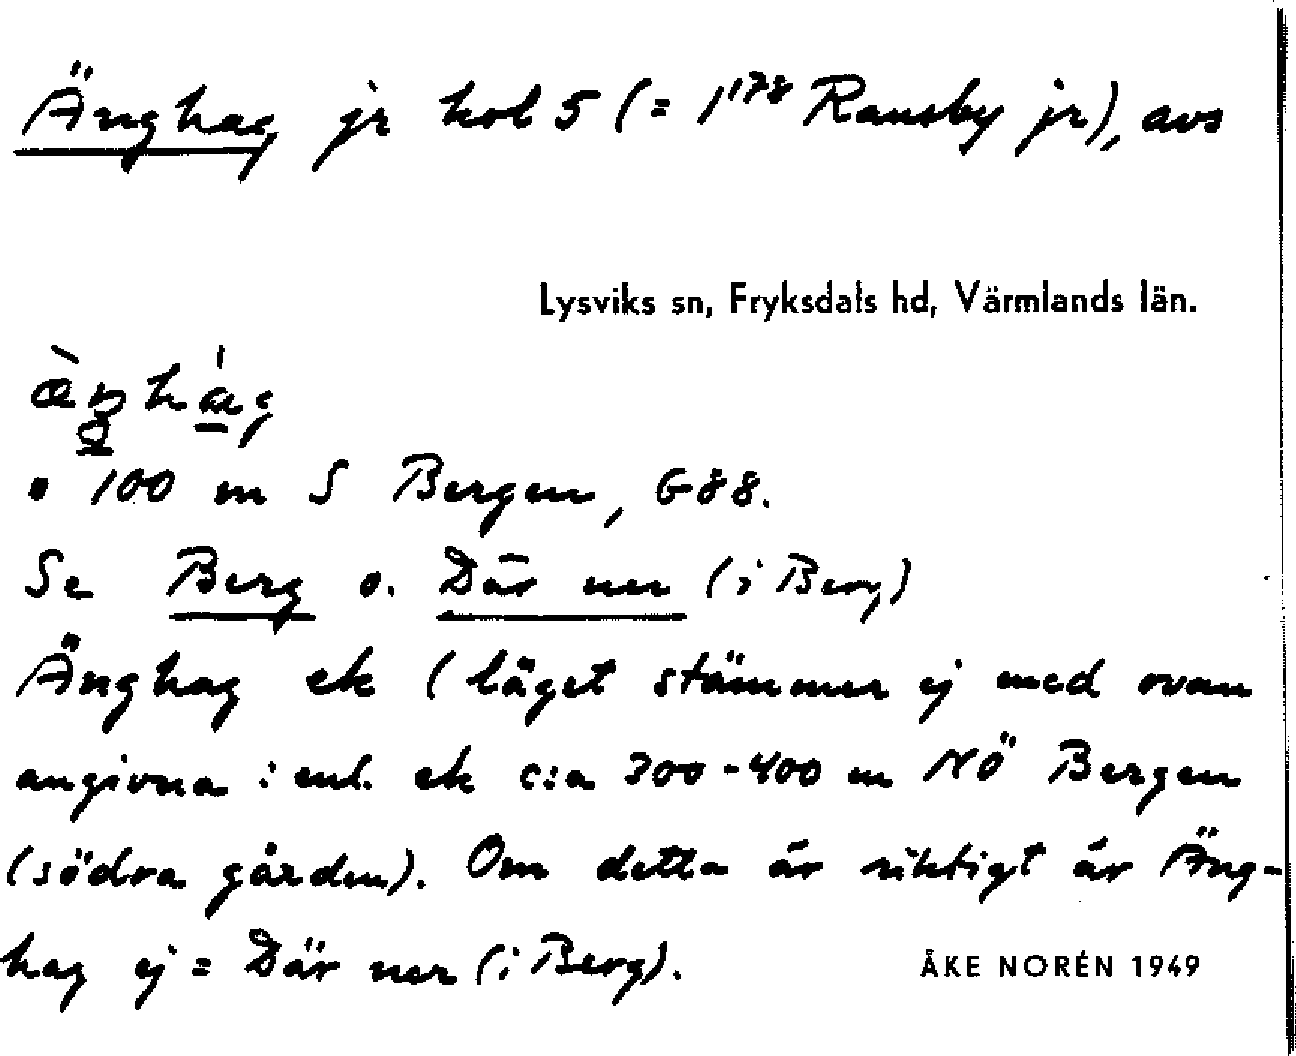 Änghag jr hol 5 (= 1¹⁷⁸ Ransby jr), avs
Lysviks sn, Fryksdals hd, Värmlands län.
100 m S Bergen, G88.
Se Berg o. Där ner (i Berg)
Änghag ek (läget stämmer ej med ovan
angivna : enl. ek c:a 300-400 m NÖ Bergen
(södra gården). Om detta är riktigt är Äng-
hag ej = Där ner (i Berg).
ÅKE NORÉN 1949